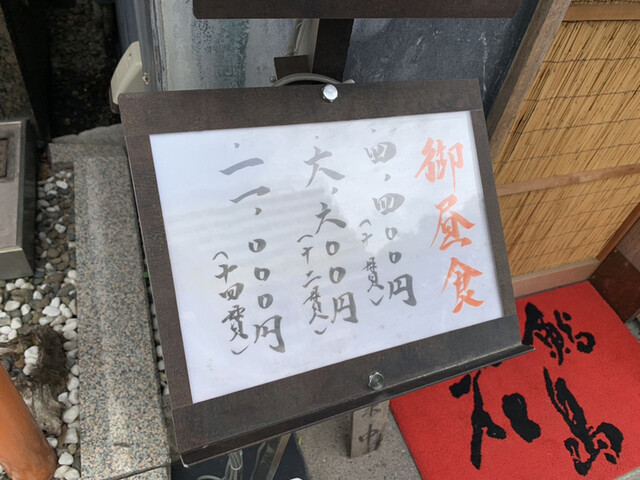 御昼食
・四、四〇〇円
(十貫)
・六、六〇〇円
(十二貫)
・一一、〇〇〇円
(十四貫)
中
鮨
島